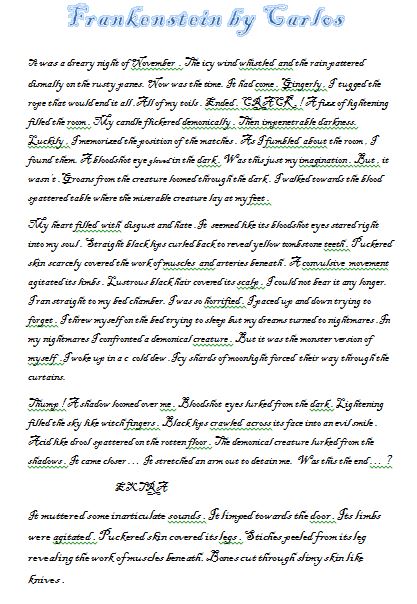 Frankenstein by Carlos
It was a dreary night of November . The icy wind whistled and the rain pattered
dismally on the rusty panes. Now was the time. It had come . Gingerly , I tugged the
rope that would end it all. All of my toils . Ended. CRACK ! A fizz of lightening
filled the room . My candle flickered demonically . Then impenetrable darkness.
Luckily , I memorized the position of the matches . As I fumbled about the room , I
found them. A bloodshot eye glowed in the dark . Was this just my imagination . But , it
wasn't . Groans from the creature loomed through the dark . I walked towards the blood
spattered table where the miserable creature lay at my feet .
My heart filled with disgust and hate . It seemed like its bloodshot eyes stared right
into my soul . Straight black lips curled back to reveal yellow tombstone teeth . Puckered
skin scarcely covered the work of muscles and arteries beneath . A convulsive movement
agitated its limbs . Lustrous black hair covered its scalp . I could not bear it any longer.
I ran straight to my bed chamber. I was so horrified . I paced up and down trying to
forget . I threw myself on the bed trying to sleep but my dreams turned to nightmares . In
my nightmares I confronted a demonical creature . But it was the monster version of
myself . I woke up in a c cold dew . Icy shards of moonlight forced their way through the
curtains.
Thump ! A shadow loomed over me . Bloodshot eyes lurked from the dark . Lightening
filled the sky like witch fingers . Black lips crawled across its face into an evil smile .
Acid like drool spattered on the rotten floor . The demonical creature lurked from the
shadows . It came closer ... It stretched an arm out to detain me. Was this the end ... ?
EXTRA
It muttered some inarticulate sounds . It limped towards the door . Its limbs
were agitated . Puckered skin covered its legs . Stiches peeled from its leg
revealing the work of muscles beneath. Bones cut through slimy skin like
knives .